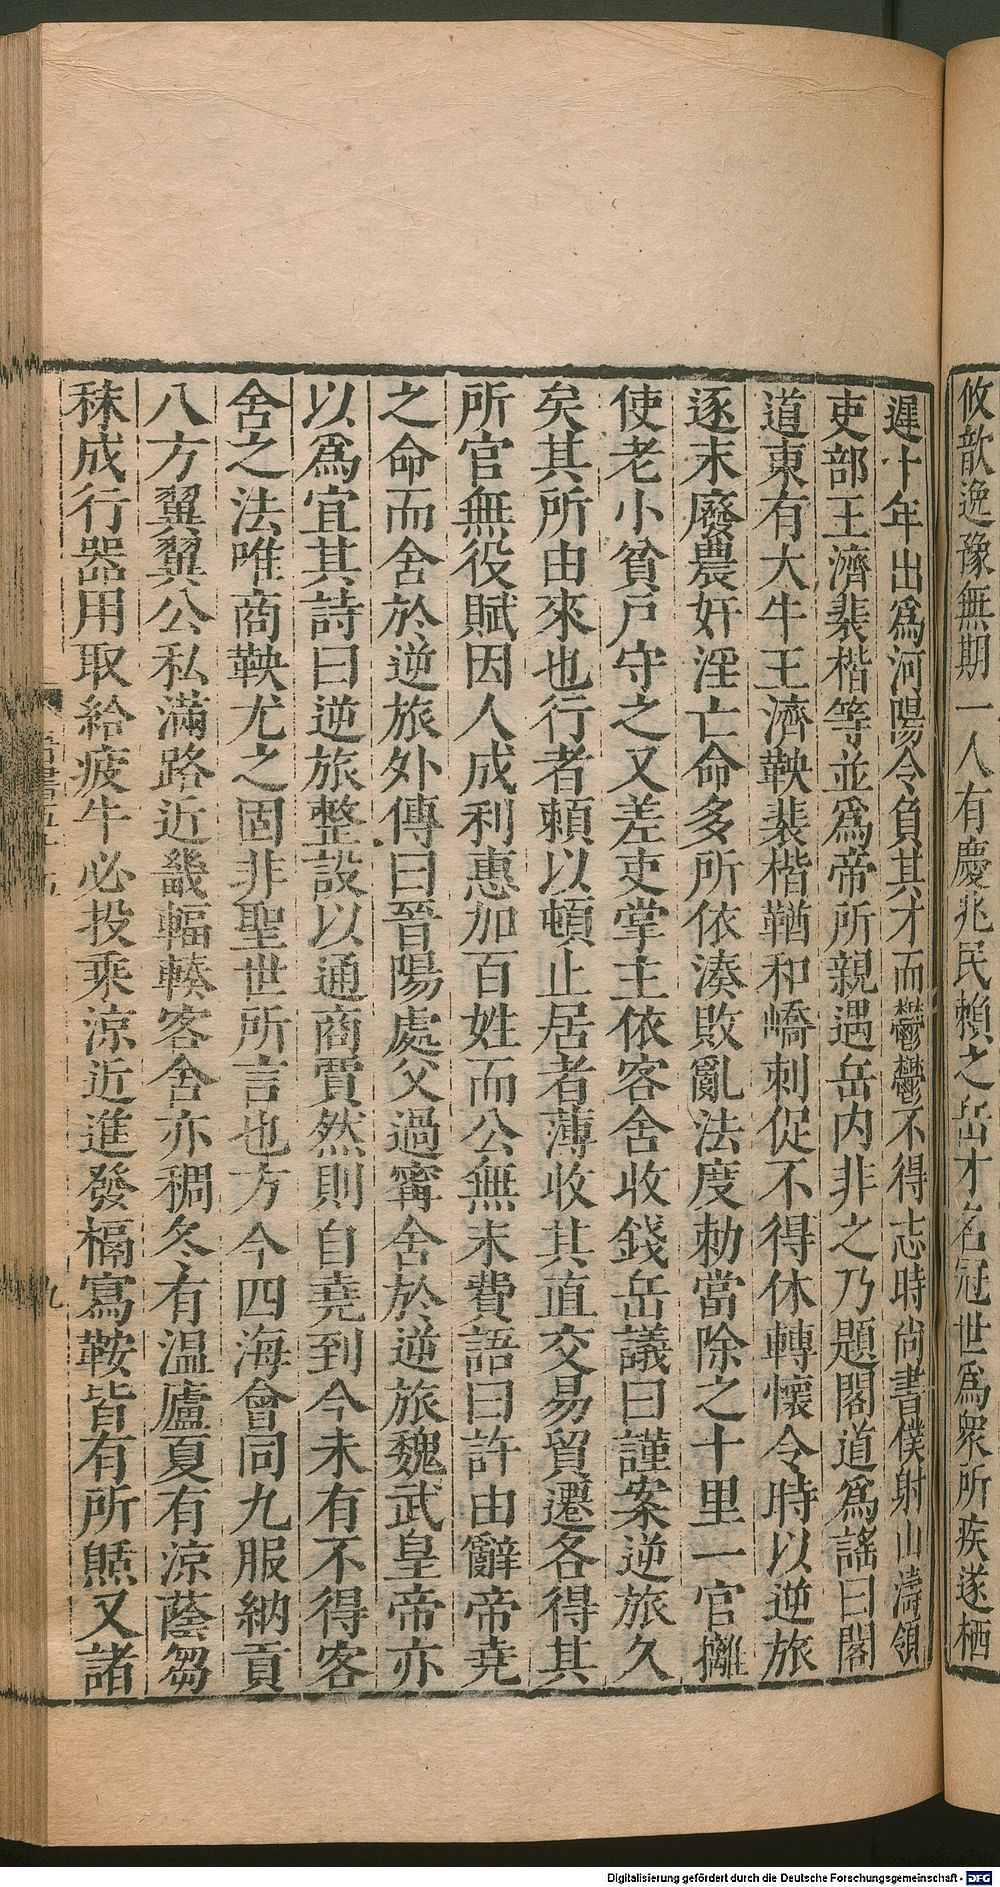 攸歆逸豫無期一人有慶兆民賴之岳才名冠世爲衆所疾遂栖
遲十年出爲河陽令負其才而鬱鬱不得志時尚書僕射山濤領
吏部王濟裴楷等並爲帝所親遇岳内非之乃題閣道爲謡曰閣
道東有大牛王濟鞅裴楷鞧和嶠刺促不得休轉懷令時以逆旅
逐末廢農奸淫亡命多所依湊敗亂法度勅當除之十里一官㰚
使老小貧戸守之又差吏掌主依客舍收錢岳議曰謹案逆旅久
矣其所由來也行者頼以頓止居者薄收其直交易貿遷各得其
所官無役賦因人成利惠加百姓而公無末費語曰許由辭帝堯
之命而舍於逆旅外傳曰晉陽處父過甯舍於逆旅魏武皇帝亦
以爲宜其詩曰逆旅整設以通商賈然則自堯到今未有不得客
舍之法唯商鞅尤之固非聖世所言也方今四海會同九服納貢
八方翼翼公私滿路近畿輻輳客舍亦稠冬有温廬夏有涼蔭芻
秣成行器用取給疲牛必投乘涼近進發槅寫鞍皆有所憩又諸
九
Digitalisierung gefördert durch die Deutsche Forschungsgemeinschaft - DFG